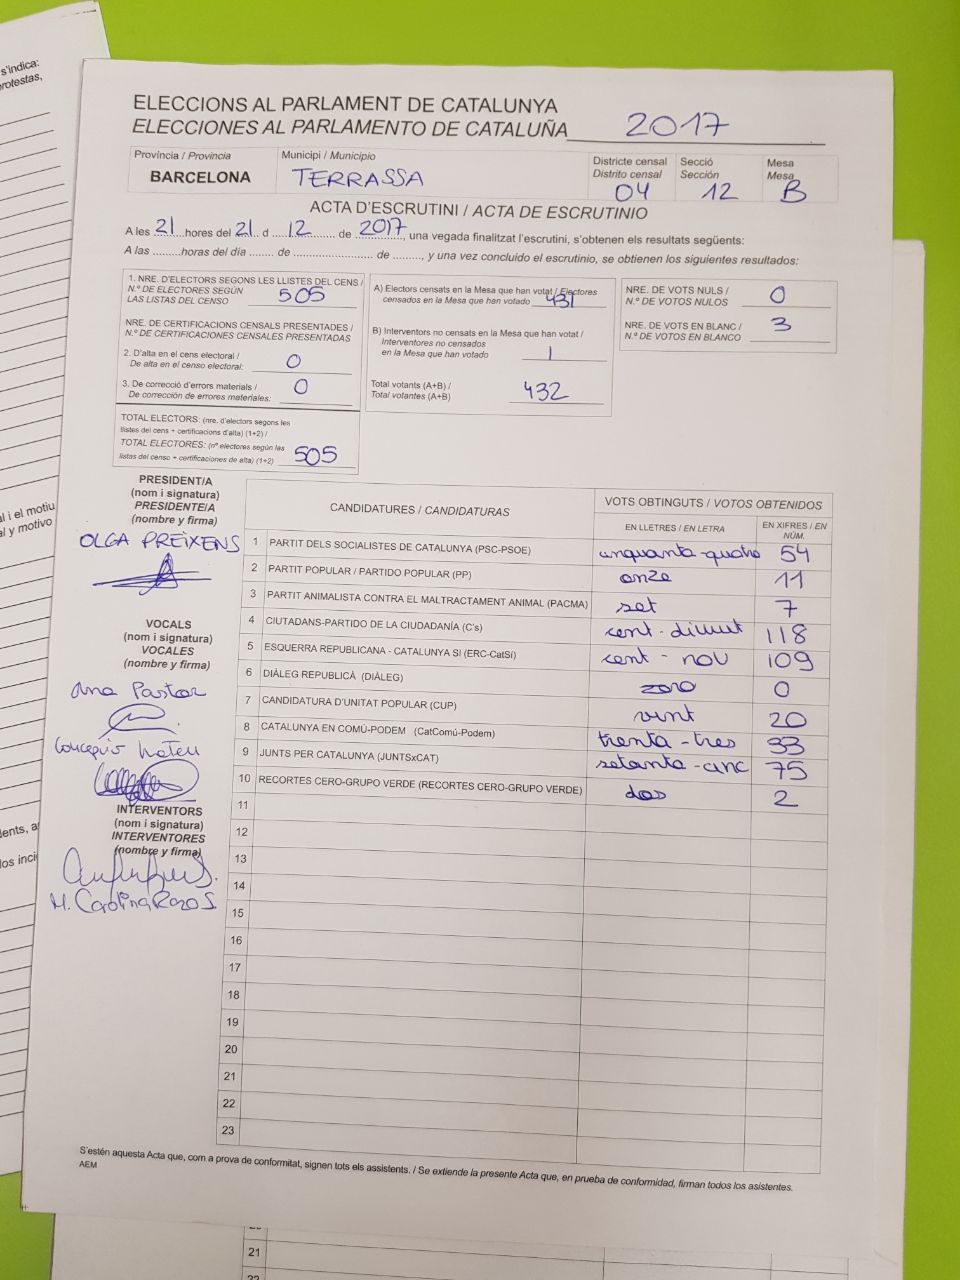 s'indica:
protestas,
ELECCIONS AL PARLAMENT DE CATALUNYA
ELECCIONES AL PARLAMENTO DE CATALUÑA 2017
Província / Provincia
BARCELONA
Municipi / Municipio
TERRASSA
Districte censal
Distrito censal
04
Secció
Sección
12
Mesa
Mesa
B
ACTA D'ESCRUTINI / ACTA DE ESCRUTINIO
A les 21 hores del 21 d 12 de 2017, una vegada finalitzat l'escrutini, s'obtenen els resultats següents:
A las .........horas del día ........ de ........................ de ........, y una vez concluido el escrutinio, se obtienen los siguientes resultados:
1. NRE. D'ELECTORS SEGONS LES LLISTES DEL CENS /
N.º DE ELECTORES SEGÚN
LAS LISTAS DEL CENSO 505
NRE. DE CERTIFICACIONS CENSALS PRESENTADES /
N.º DE CERTIFICACIONES CENSALES PRESENTADAS
2. D'alta en el cens electoral /
De alta en el censo electoral: 0
3. De correcció d'errors materials /
De corrección de errores materiales: 0
TOTAL ELECTORS: (nre. d'electors segons les
llistes del cens + certificacions d'alta) (1+2) /
TOTAL ELECTORES: (nº electores según las
listas del censo + certificaciones de alta) (1+2) 505
A) Electors censats en la Mesa que han votat / Electores
censados en la Mesa que han votado 431
B) Interventors no censats en la Mesa que han votat /
Interventores no censados
en la Mesa que han votado 1
Total votants (A+B) /
Total votantes (A+B) 432
NRE. DE VOTS NULS /
N.º DE VOTOS NULOS 0
NRE. DE VOTS EN BLANC /
N.º DE VOTOS EN BLANCO 3
PRESIDENT/A
(nom i signatura)
PRESIDENTE/A
(nombre y firma)
OLGA PREIXENS
VOCALS
(nom i signatura)
VOCALES
(nombre y firma)
Ana Pastor
INTERVENTORS
(nom i signatura)
INTERVENTORES
(nombre y firma)
CANDIDATURES / CANDIDATURAS
VOTS OBTINGUTS / VOTOS OBTENIDOS
EN LLETRES / EN LETRA
EN XIFRES / EN NÚM.
1 PARTIT DELS SOCIALISTES DE CATALUNYA (PSC-PSOE) cinquanta-quatre 54
2 PARTIT POPULAR / PARTIDO POPULAR (PP) onze 11
3 PARTIT ANIMALISTA CONTRA EL MALTRACTAMENT ANIMAL (PACMA) set 7
4 CIUTADANS-PARTIDO DE LA CIUDADANÍA (C's) cent-divuit 118
5 ESQUERRA REPUBLICANA - CATALUNYA SÍ (ERC-CatSí) cent-nou 109
6 DIÀLEG REPUBLICÀ (DIÀLEG) zero 0
7 CANDIDATURA D'UNITAT POPULAR (CUP) vint 20
8 CATALUNYA EN COMÚ-PODEM (CatComú-Podem) trenta-tres 33
9 JUNTS PER CATALUNYA (JUNTSxCAT) setanta-cinc 75
10 RECORTES CERO-GRUPO VERDE (RECORTES CERO-GRUPO VERDE) dos 2
11
12
13
14
15
16
17
18
19
20
21
22
23
S'estén aquesta Acta que, com a prova de conformitat, signen tots els assistents. / Se extiende la presente Acta que, en prueba de conformidad, firman todos los asistentes.
AEM
21